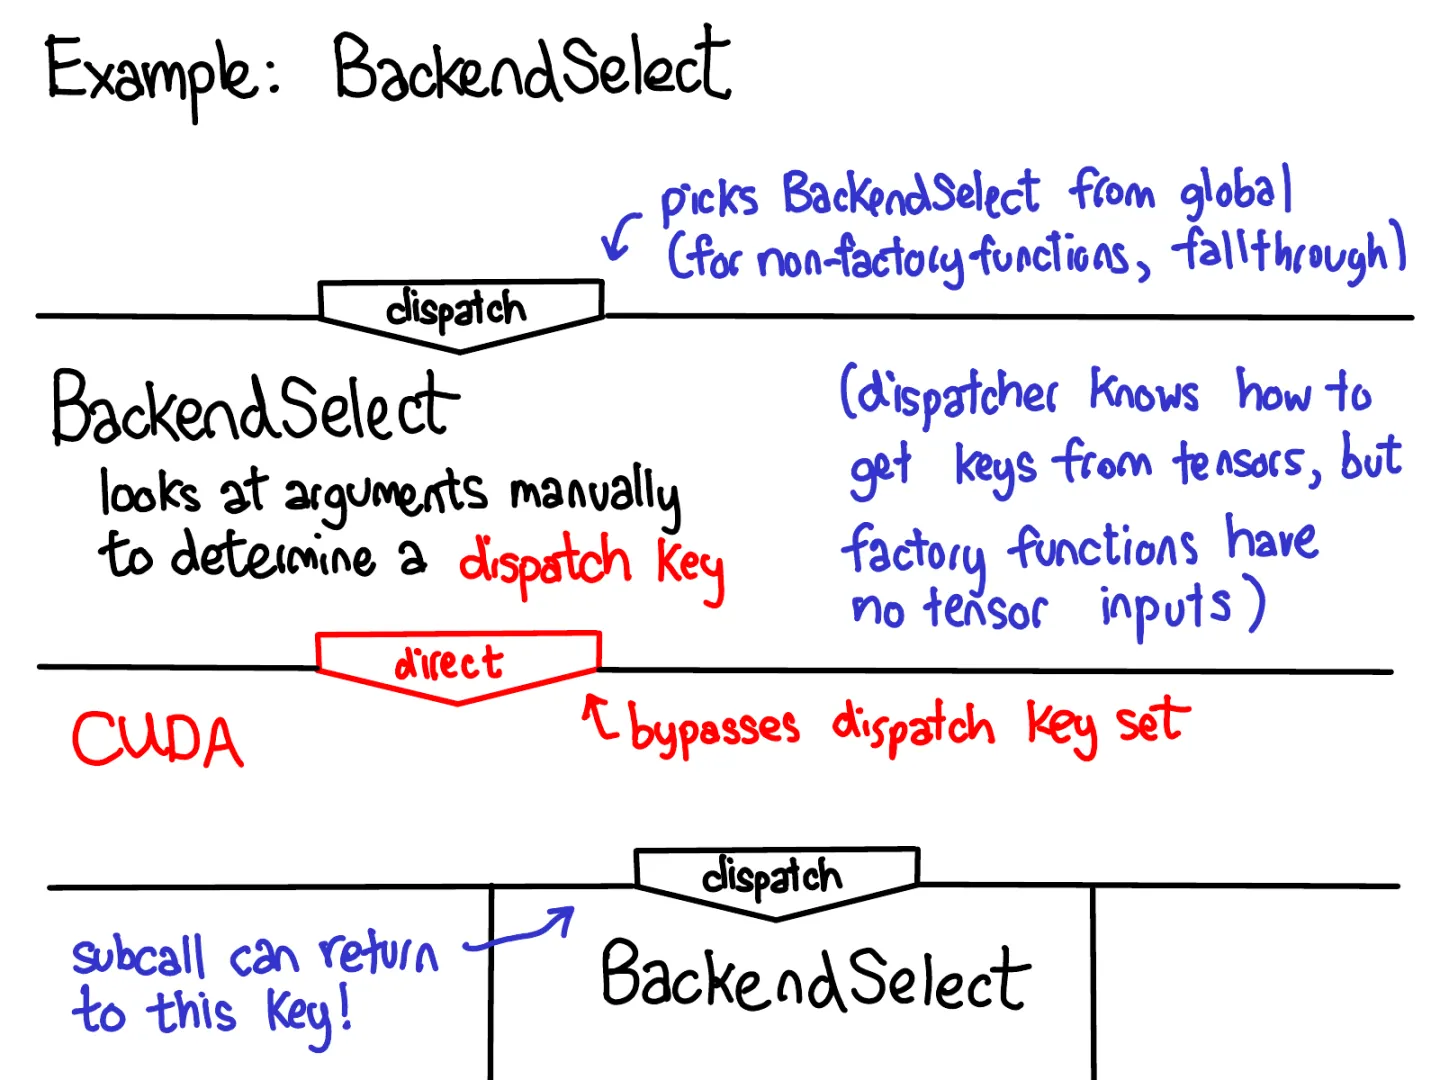 Example: BackendSelect
picks BackendSelect from global
(for non-factory functions, fallthrough)
dispatch
BackendSelect
looks at arguments manually
to determine a dispatch key
(dispatcher knows how to
get keys from tensors, but
factory functions have
no tensor inputs)
direct
CUDA
bypasses dispatch key set
dispatch
subcall can return
to this key!
BackendSelect